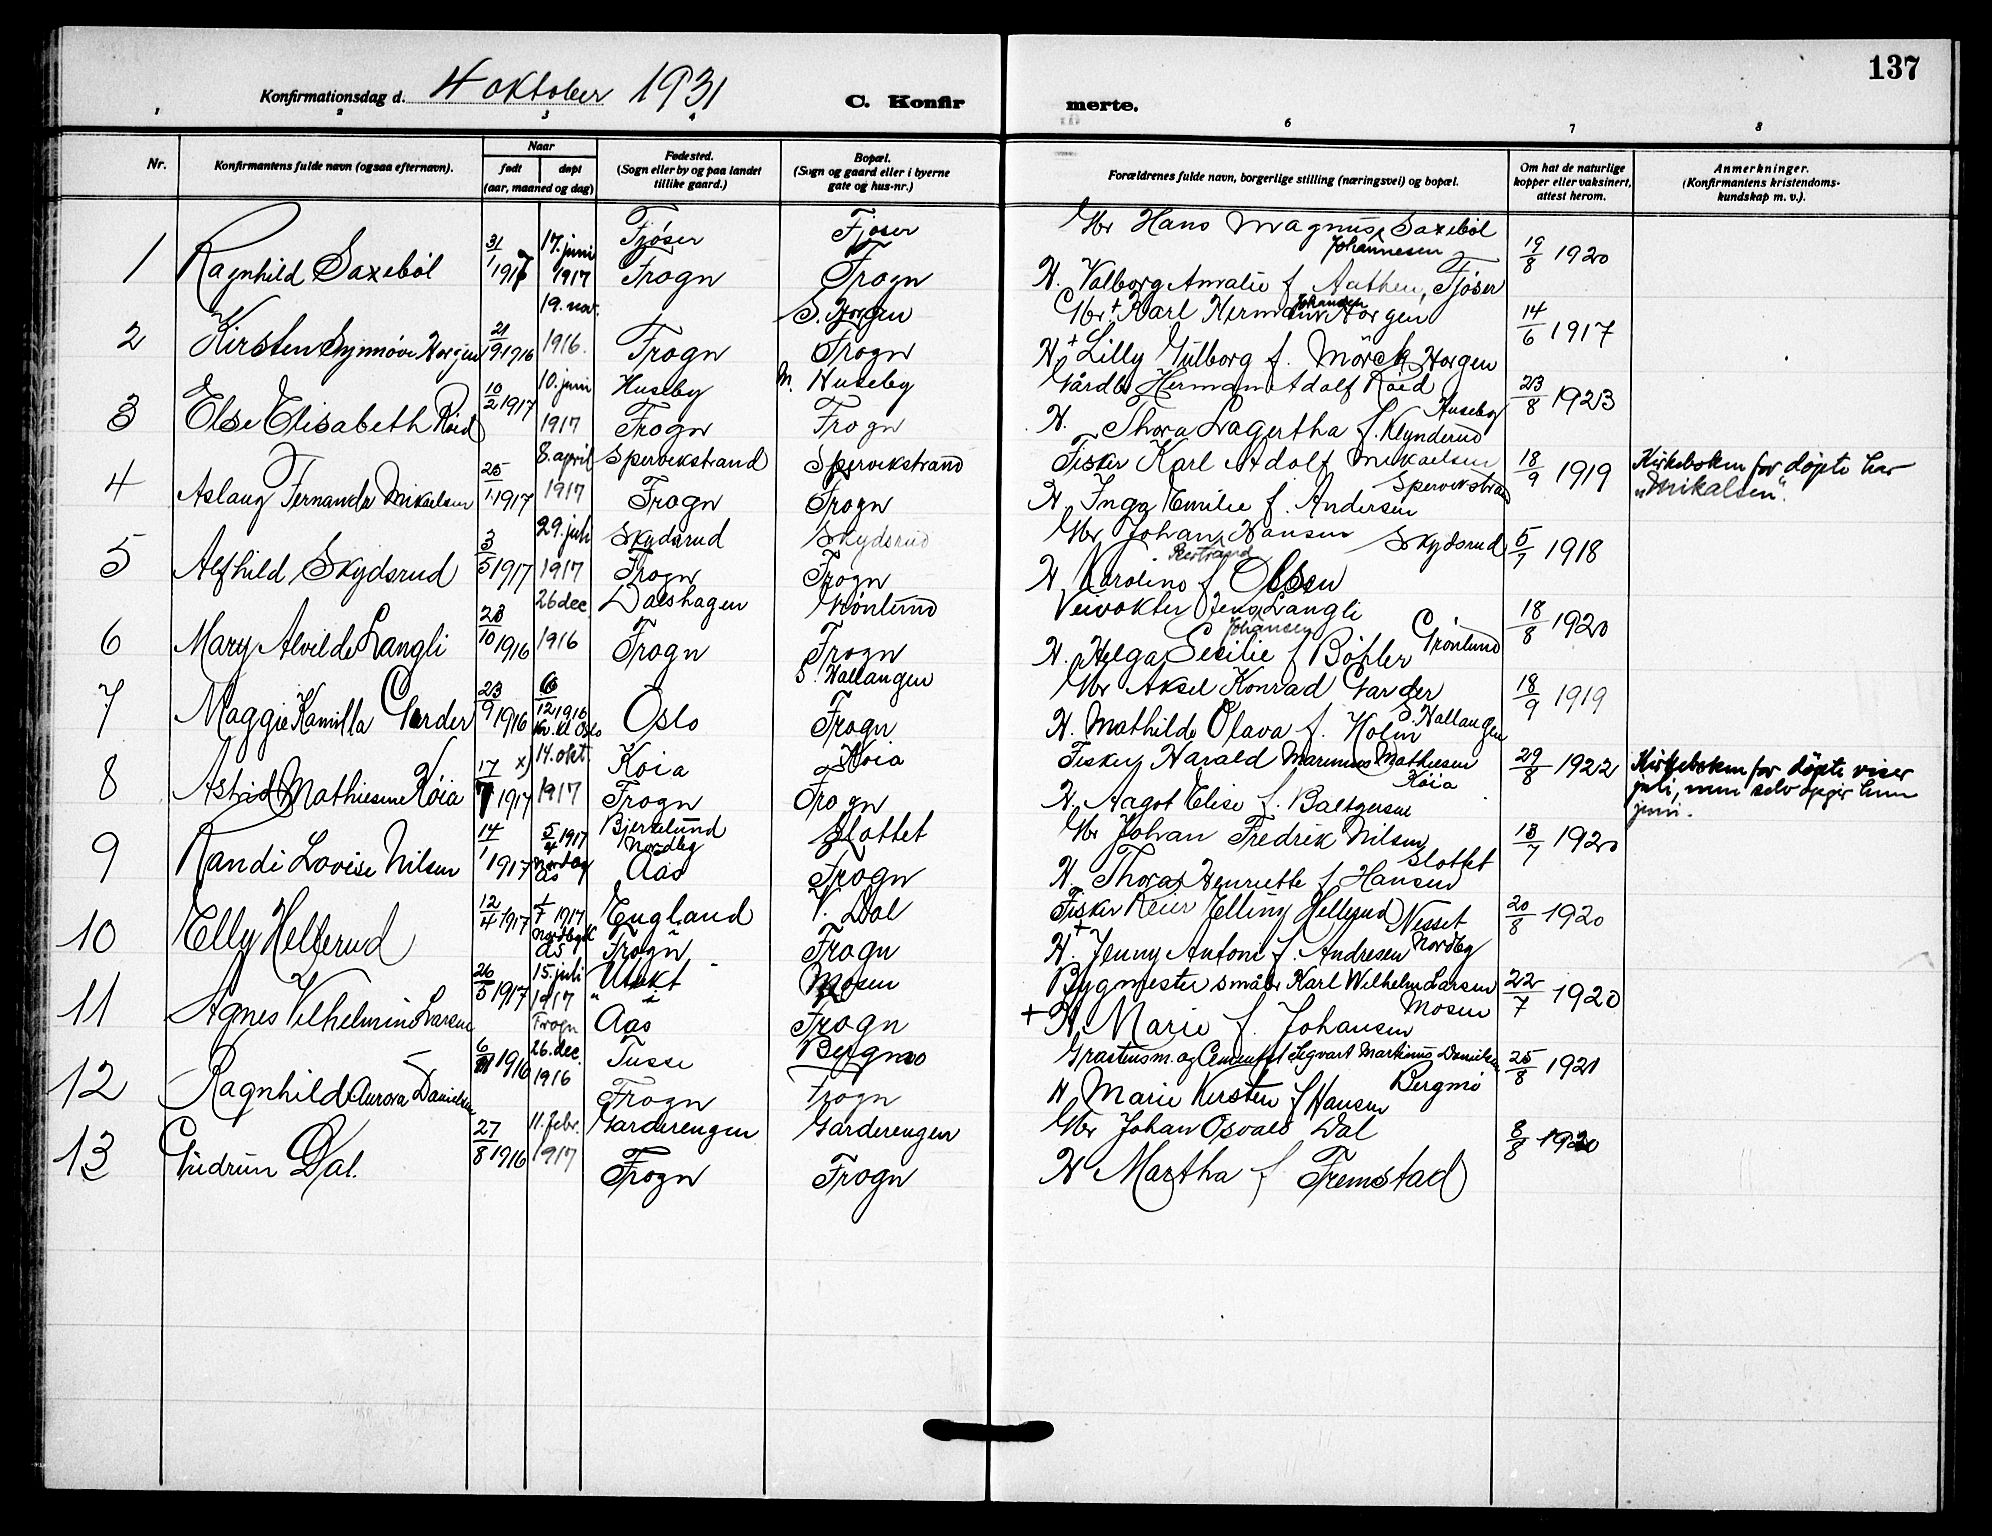 137
Konfirmationsdag d. 4 oktober 1931
C. Konfir merte.
1 2 3 4 6 7 8
Nr.
Konfirmantens fulde navn (ogsaa efternavn).
Naar
født døpt
(aar, maaned og dag)
Fødested.
(Sogn eller by og paa landet
tillike gaard.)
Bopæl.
(Sogn og gaard eller i byerne
gate og hus-nr.)
Forældrenes fulde navn, borgerlige stilling (næringsvei) og bopæl.
Om hat de naturlige
kopper eller vaksinert,
attest herom.
Anmerkninger.
(Konfirmantens kristendoms-
kundskap m. v.).
17. juni Fjöser Fjöser Gbr Hans Magnus Saxebøl
Johannesen
1 Ragnhild Saxebøl 31/1 1917 1917 Frogn Frogn H. Valborg Amalie f. Authen, Fjöser 19/8 1920
19. nov. S. Horgen Gbr. + Karl Herman Horgen
Johansen
2 Kirsten Synnøve Horgen 21/9 1916 1916. Frogn Frogn H. + Lilly Gulborg f. Mörck Horgen 14/6 1917
10. juni Huseby N. Huseby Gårdbr Herman Adolf Røed
Huseby
3 Else Elisabeth Røed 10/2 1917 1917 Frogn Frogn H. Thora Lagertha f. Klynderud 23/8 1923
8. april Spervikstrand Spervikstrand Fisker Karl Adolf Mikaelsen
Spervikstrand
4 Aslaug Fernanda Mikaelsen 25/1 1917 1917 Frogn Frogn H. Inga Emilie f. Andersen 18/9 1919
Kirkeboken for döpte har
"Mikalsen".
29. juli Skydsrud Skydsrud Gbr Johan Hansen Skydsrud
Bertrand
5 Alfhild Skydsrud 3/5 1917 1917 Frogn Frogn H. Karoline f. Olsen 5/7 1918
26 dec. Dalshagen Grönlund Veivokter Jens Langli
Johansen Grönlund
6 Mary Alvilde Langli 23/10 1916 1916 Frogn Frogn H. Helga Secilie f. Böhler 18/8 1920
S. Hallangen Gbr Aksel Konrad Garder
S. Hallangen
7 Maggie Kamilla Garder 23/9 1916 6/12 1916 Oslo Frogn H. Mathilde Olava f. Holm 18/9 1919
14. okt. Köia Köia Fisker Harald Marinius Mathiesen
Köia
8 Astrid Mathiesen Köia 17/7 1917 x) 1917 Frogn Frogn H. Aagot Elise f. Baltzersen 29/8 1922
Kirkeboken for döpte viser
juli, men selv opgir hun
juni.
5/4 1917 Bjerkelund Slottet Gbr Johan Fredrik Nilsen
Nordby Slottet
9 Randi Lovise Nilsen 14/1 1917 Nordby Ås Aas Frogn H. Thora Henriette f. Hansen 13/7 1920
1/7 1917 England V. Dal Fisker Reier Elling Hellerud Nesset
10 Elly Hellerud 12/4 1917 Nordby K Ås Frogn Frogn H. + Jenny Antoni f. Andresen Nordby 20/8 1920
15. juli Utskt Mosen Bygmester småbr Karl Wilhelm Larsen
Mosen
11 Agnes Vilhelmine Larsen 26/5 1917 1917 Frogn i Aas Frogn + H. Marie f. Johansen 22/7 1920
26. dec. Tusse Bergmo Segvart Martinius Danielsen
Bergmo
12 Ragnhild Aurora Danielsen 6/11 1916 1916 Frogn Frogn H Marie Kirsten f Hansen 25/8 1921
11. febr. Garderengen Garderengen Gbr Johan Osvald Dal
13 Gudrun Dal. 27/8 1916 1917 Frogn Frogn H Martha f Fremstad 8/8 1920